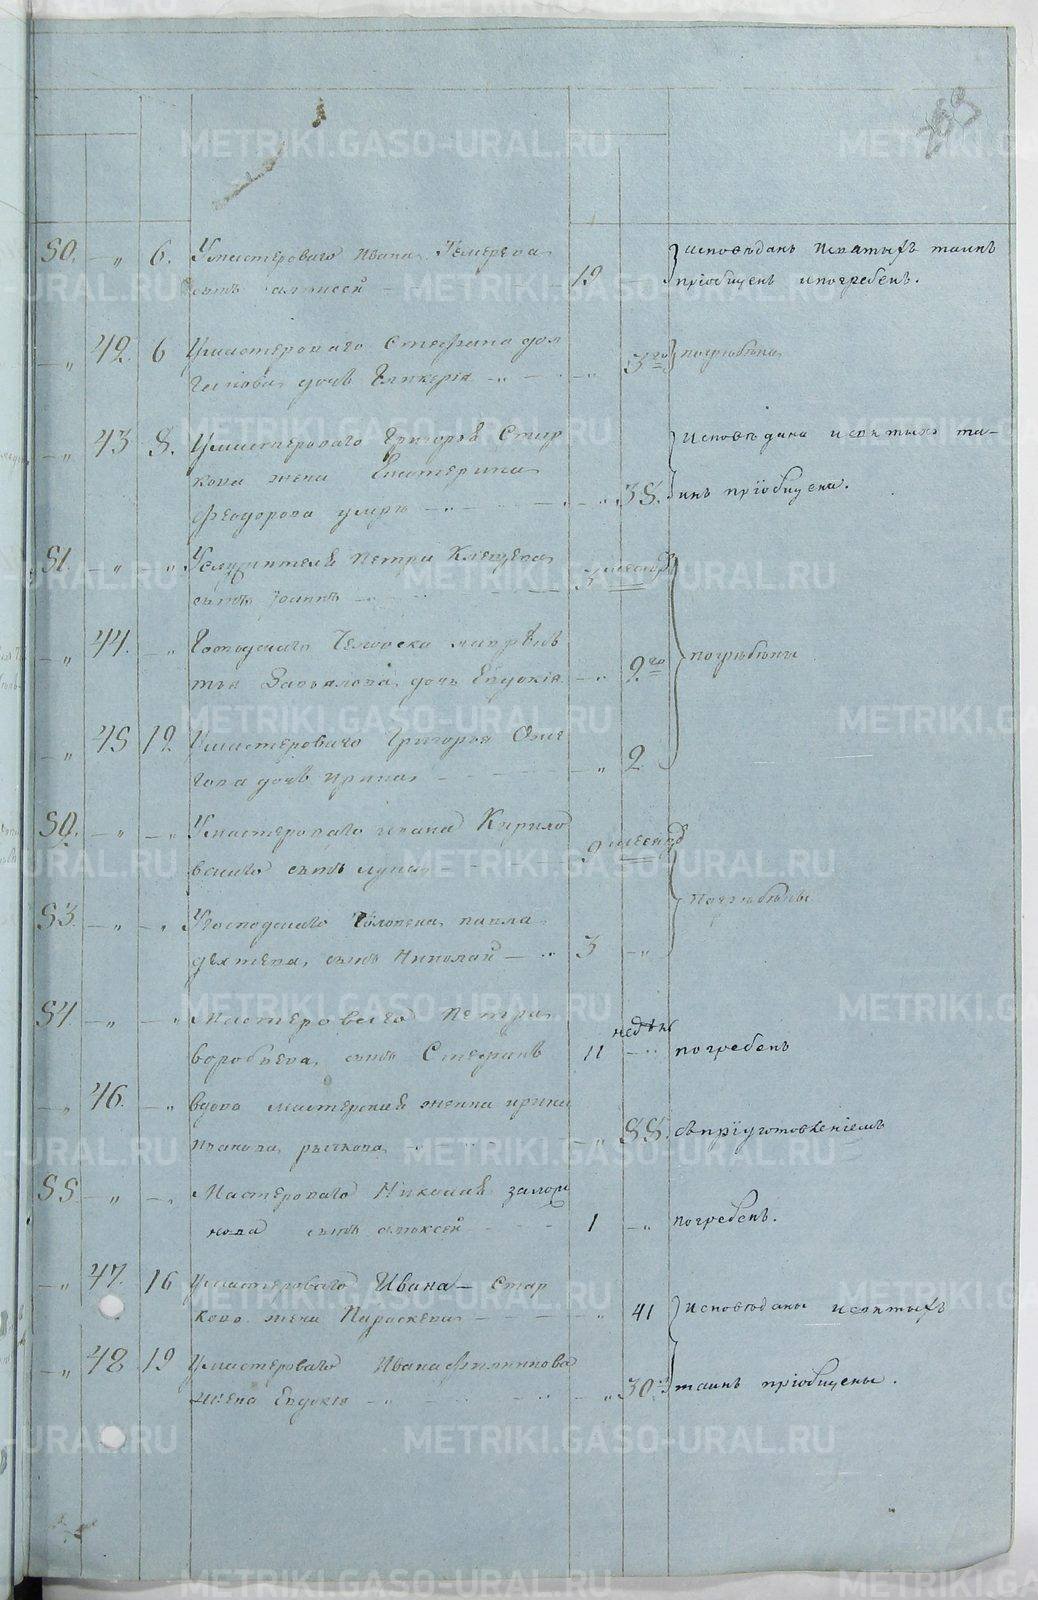 50. „ 6. Умастероваго Ивана
сынъ алексей 12
Исповѣданъ исвятыхъ таинъ
пріобщенъ ипогребенъ.
„ 42. 6 Умастероваго Стефана дол
гакова дочь Гликерія „ 3го погрѣбѣна
„ 43 8. Умастероваго Григорья Стар
кова жена Екатерина
Феодорова умре „ 38.
Исповѣдана исвятыхъ та-
инъ пріобщена.
51. „ „ Петра Клещева
сынъ Іоаннъ
44. „ Господскаго Человека
Завьялова дочь Евдокія „ 2го
погрѣбѣны
„ 45 12 Умастероваго Григорья
дочь Ирина „ 2
52. „ „ Умастероваго ивана Кирило
васаго сынъ лупа 9 месецов
53. „ „ Угосподскаго Человека павла
дектева, сынъ Николай 3 „
погрѣбѣны
54. „ „ Мастероваго Петра
воробьева, сынъ Стефанъ 11 недѣль погребенъ
„ 46. „ вдова мастерская женка ирина
иванова рычкова „ 55. съпріуготовленіемъ
55 „ „ Мастероваго Николая
сынъ алексей 1 „ погребенъ.
„ 47. 16 Умастероваго Ивана Стар
кова жена Параскева „ 41
Исповѣданы исвятыхъ
„ 48 19 Умастероваго Ивана Филипова
жена Евдокія „ 30
таинъ пріобщены.
METRIKI.GASO-URAL.RU